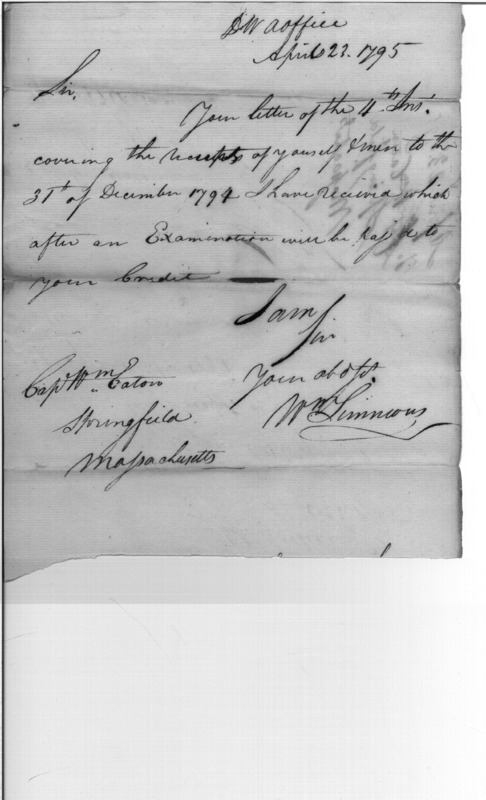 D W aoffice
April 23. 1795
Sir,
Your letter of the 4th Inst.
covering the receipts of yourself & men to the
31st of December 1794 I have received which
after an Examination will be pass'd to
your Credit
I am
Sir
Your obdst.
Wm Simmons
Capt Wm Eaton
Springfield
Massachusetts